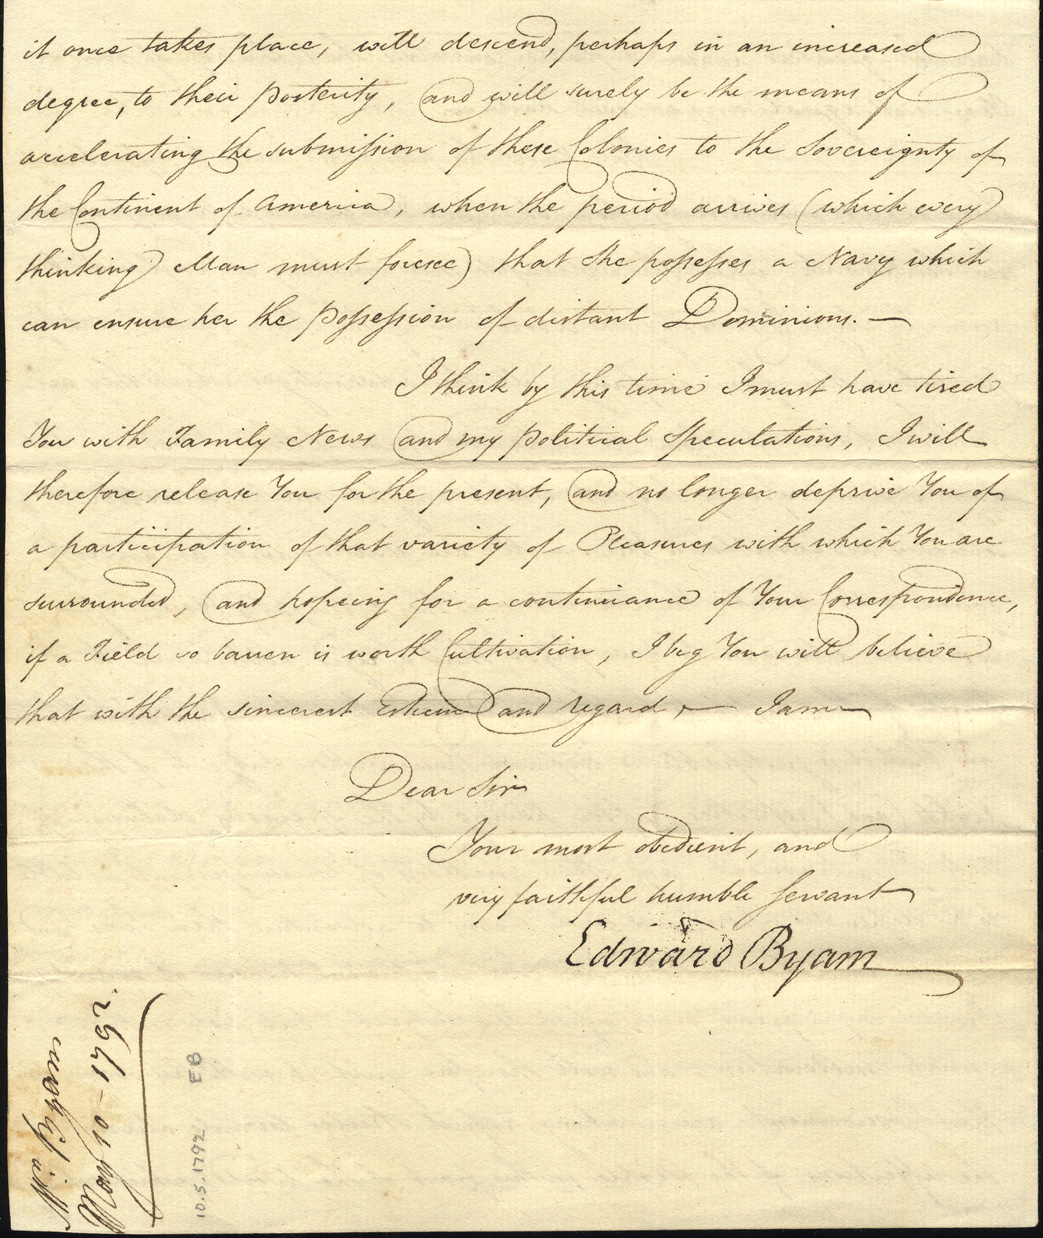 it once takes place, will descend, perhaps in an increased
degree, to their posterity, and will surely be the means of
accelerating the submission of these Colonies to the Sovereignty of
the Continent of America, when the period arrives (which every
thinking Man must foresee) that she possesses a Navy which
can ensure her the possession of distant Dominions. —
I think by this time I must have tired
You with Family News and my political speculations, I will
therefore release You for the present, and no longer deprive You of
a participation of that variety of Pleasures with which You are
surrounded, and hopeing for a continuance of Your Correspondence,
if a Field so barren is worth Cultivation, I beg You will believe
that with the sincerest Esteem and regard, — I am —
Dear Sir
Your most obedient, and
very faithful humble Servant
Edward Byam
Byam
May 10 - 1792.
10.5.1792 EB